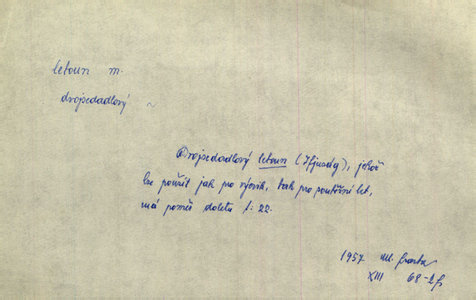 letoun m.
dvojsedadlový ~
Dvojsedadlový letoun (Ifjuság), jehož
lze použít jak pro výcvik, tak pro soutěžní let,
má poměr doletu 1:22.
1957 Ml.
XIII 68-